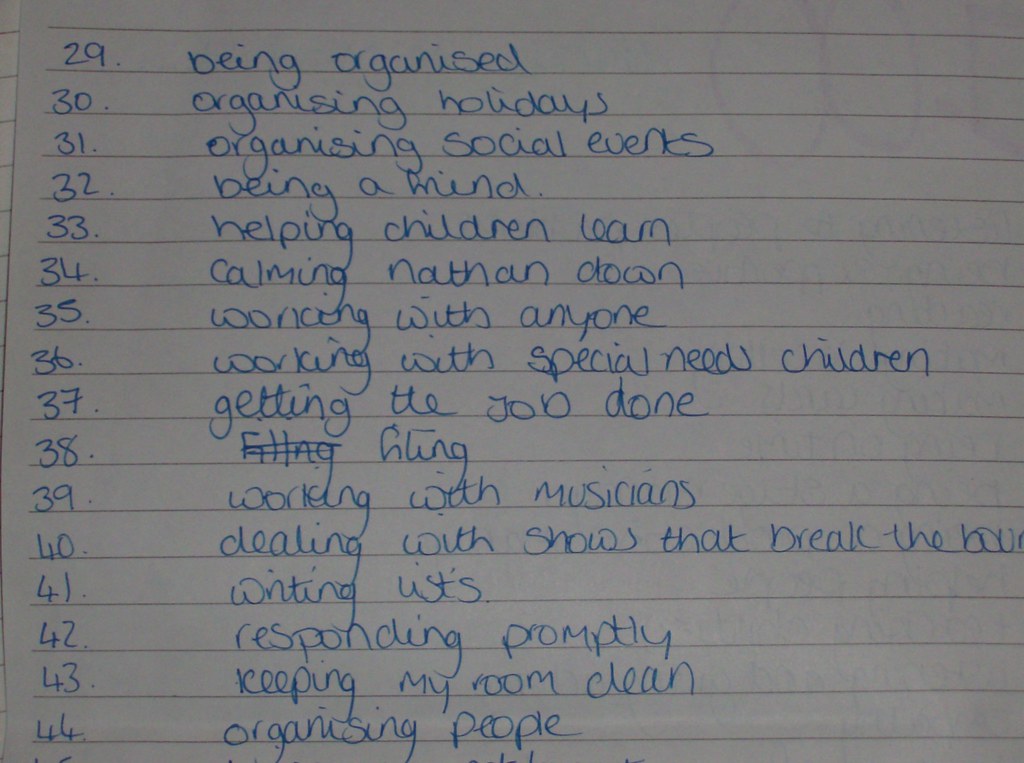 29. being organised
30. organising holidays
31. organising social events
32. being a friend.
33. helping children learn
34. calming nathan down
35. working with anyone
36. working with special needs children
37. getting the job done
38. Filing filing
39. working with musicians
40. dealing with shows that break the
41. writing lists.
42. responding promptly
43. keeping my room clean
44. organising people